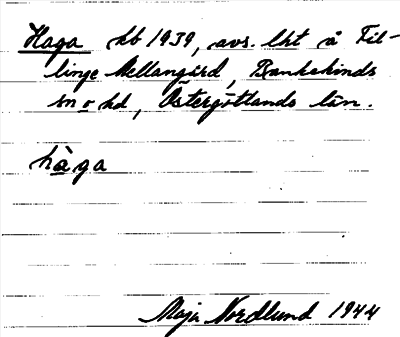 Haga kb 1939, avs. lht å Til-
linge Mellangård, Bankekinds
sn o hd, Östergötlands län.
hàga
Maja Nordlund 1944